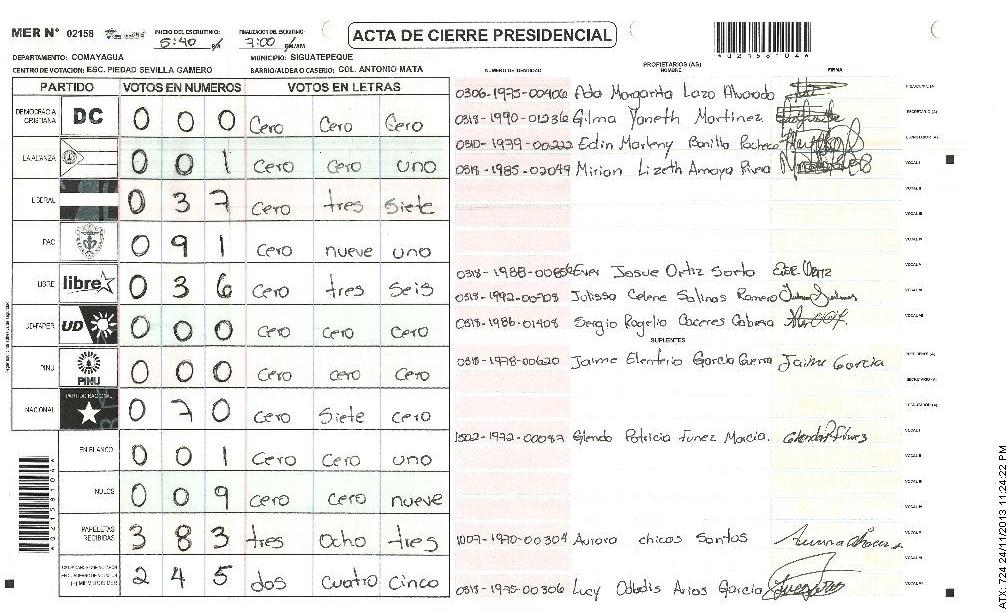 MER Nº 02158
INICIO DEL ESCRUTINIO: 5:40
FINALIZACION DEL ESCRUTINIO: 7:00 PM/AM
ACTA DE CIERRE PRESIDENCIAL
DEPARTAMENTO: COMAYAGUA MUNICIPIO: SIGUATEPEQUE
CENTRO DE VOTACION: ESC. PIEDAD SEVILLA GAMERO BARRIO/ALDEA O CASERIO: COL. ANTONIO MATA
PARTIDO VOTOS EN NUMEROS VOTOS EN LETRAS
DEMOCRACIA CRISTIANA DC 0 0 0 Cero Cero Cero
LA ALIANZA 0 0 1 Cero cero uno
LIBERAL 0 3 7 Cero tres Siete
PAC 0 9 1 Cero nueve uno
LIBRE libre 0 3 6 Cero tres Seis
UD-FAPER UD 0 0 0 Cero Cero Cero
PINU PINU 0 0 0 Cero cero Cero
NACIONAL PARTIDO NACIONAL 0 7 0 Cero Siete cero
EN BLANCO 0 0 1 Cero Cero uno
NULOS 0 0 9 Cero cero nueve
PAPELETAS RECIBIDAS 3 8 3 tres Ocho tres
2 4 5 dos cuatro cinco
*02158104*
NUMERO DE IDENTIDAD PROPIETARIOS (AS) NOMBRE FIRMA
0306-1975-00406 Ada Margarita Lazo Alvarado
0318-1990-01236 Gilma Yaneth Martinez
0310-1979-00222 Edin Marleny Bonilla Pacheco
0318-1985-02049 Mirian Lizeth Amaya Rivera
Ever Josue Ortiz Sorto
Julissa Celene Salinas Romero
0318-1986-01408 Sergio Rogelio Caceres Cabrera
SUPLENTES
0318-1978-00620 Jaime Elenterio Garcia Guerra Jaime Garcia
Patricia Funez Marcia.
1007-1970-00304 Aurora chicas Santos
0318-1975-00306 Lucy Odalis Arias Garcia
ATX-724-24/11/2013 11:24:22 PM